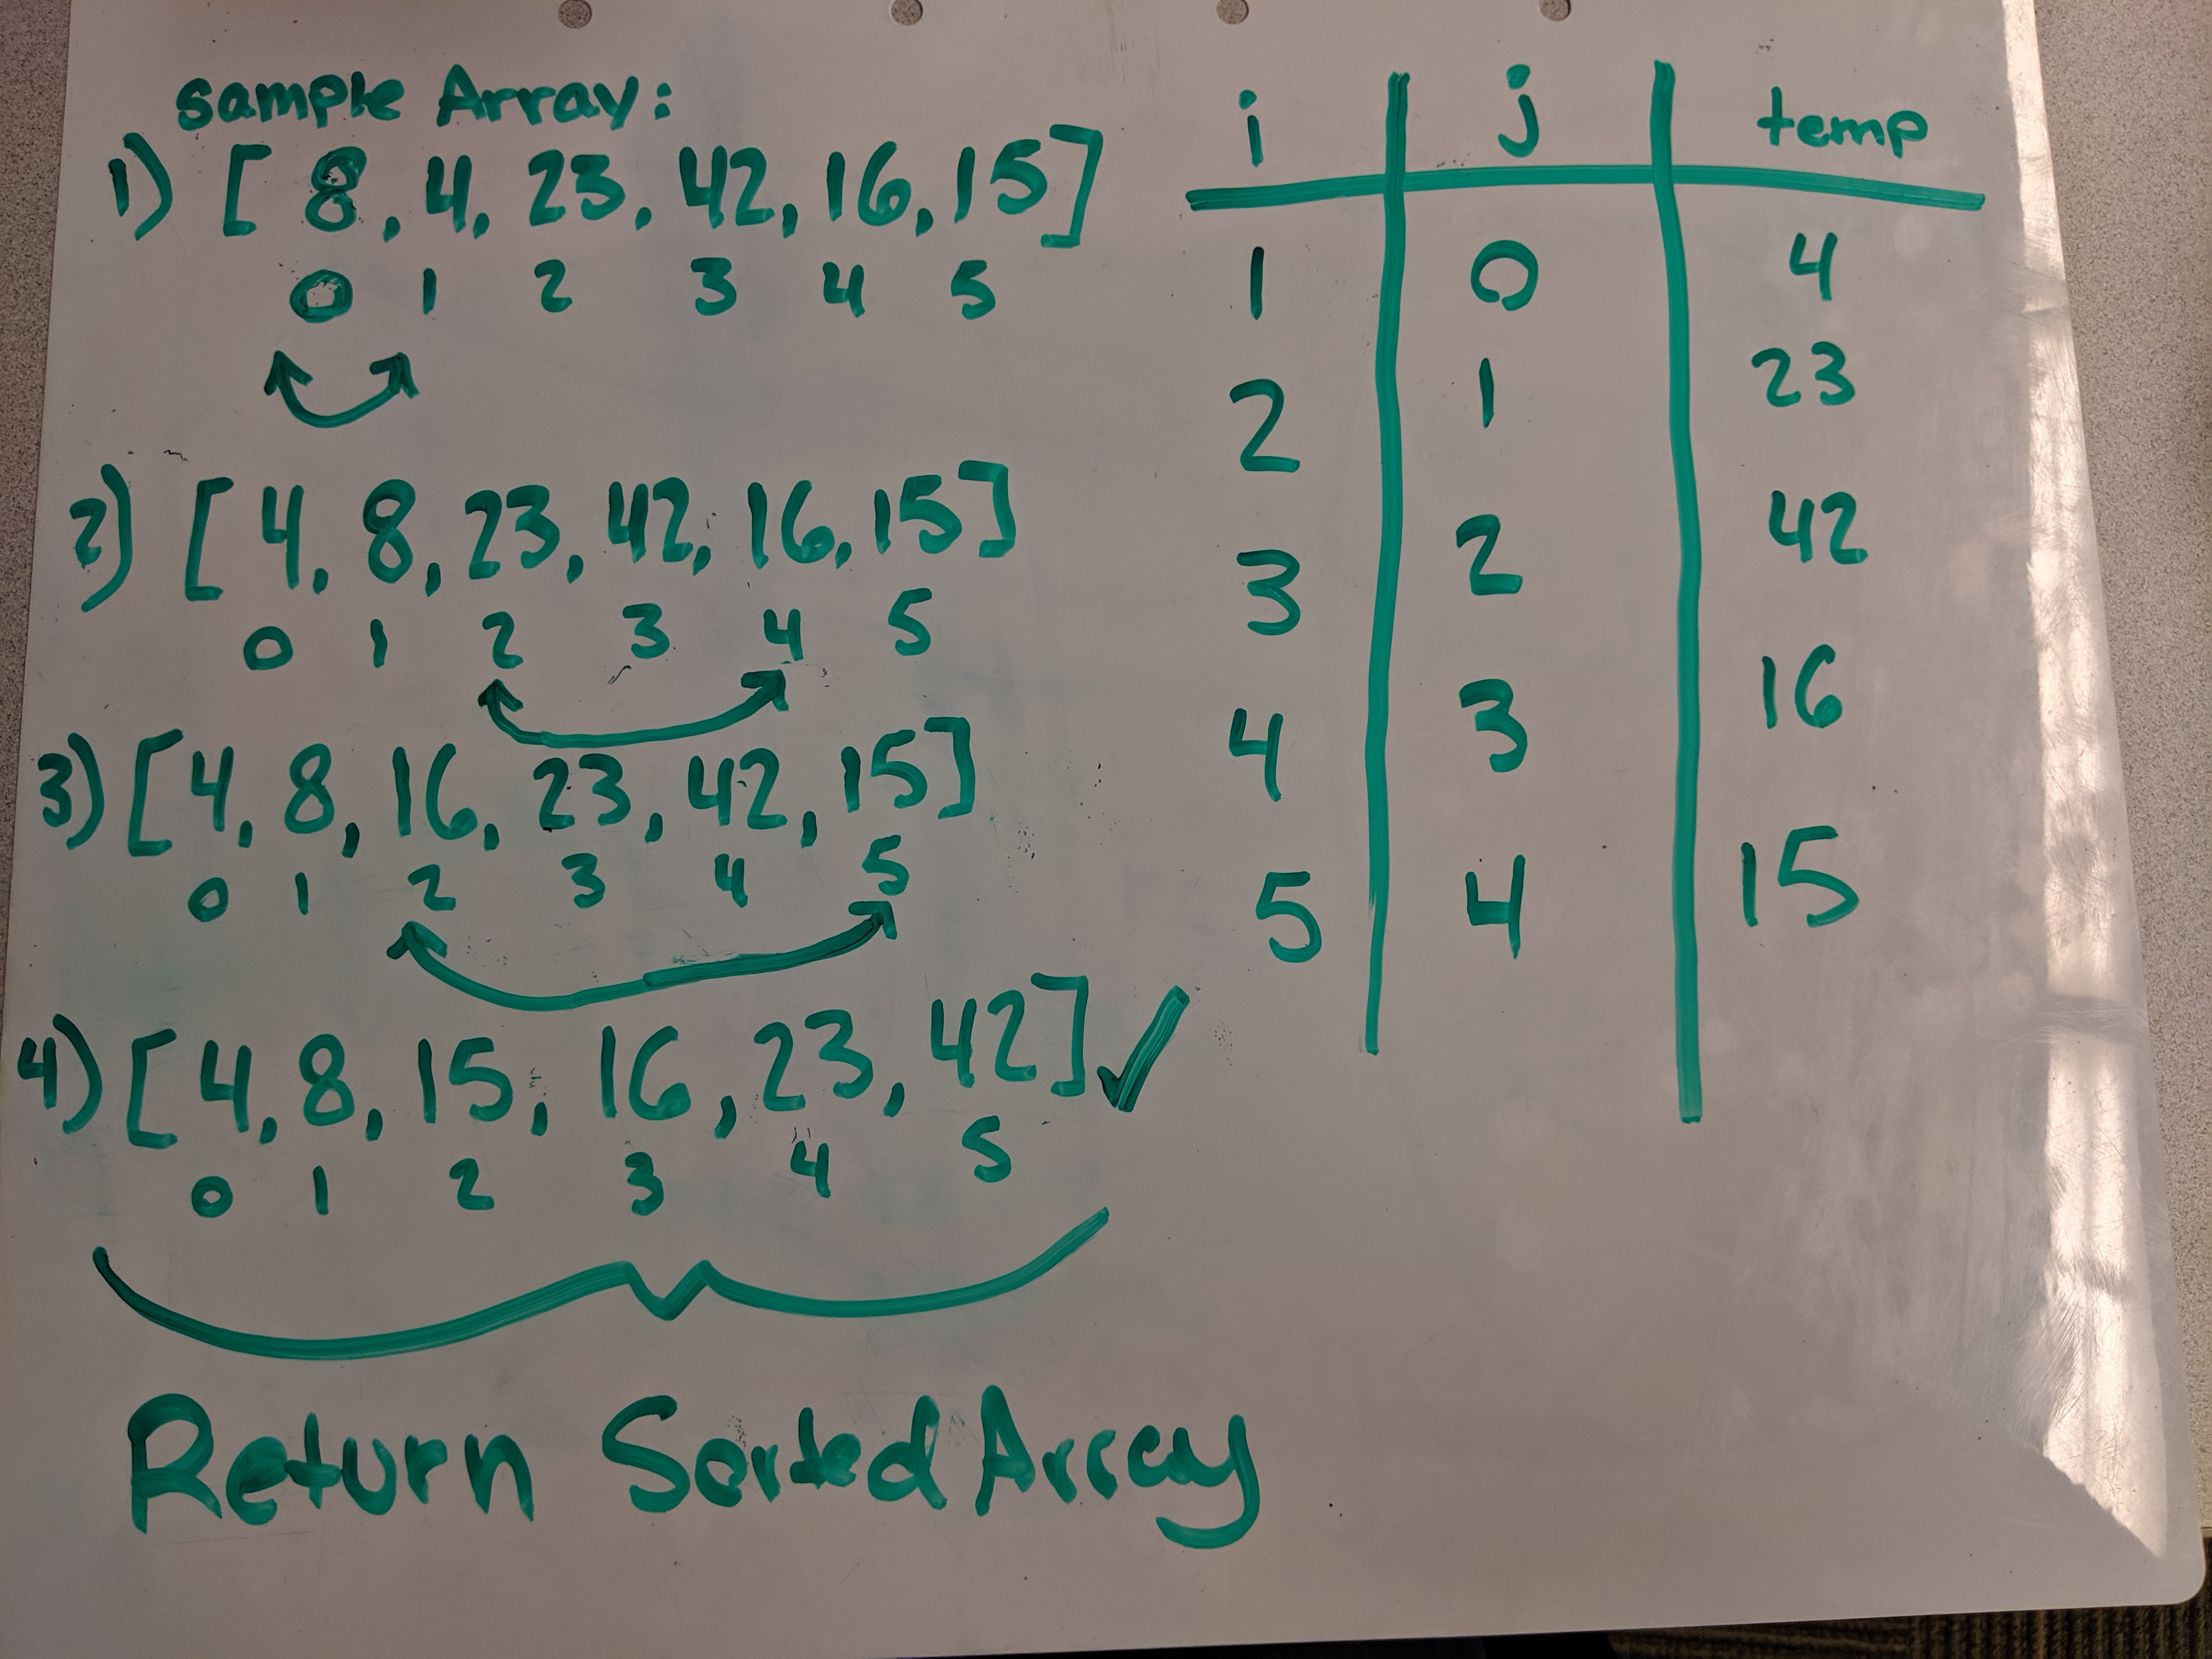 sample Array:
1) [ 8, 4, 23, 42, 16, 15]
0 1 2 3 4 5
2) [ 4, 8, 23, 42, 16, 15]
0 1 2 3 4 5
3) [4, 8, 16, 23, 42, 15]
0 1 2 3 4 5
4) [4, 8, 15, 16, 23, 42] ✓
0 1 2 3 4 5
Return Sorted Array
i j temp
1 0 4
2 1 23
3 2 42
4 3 16
5 4 15